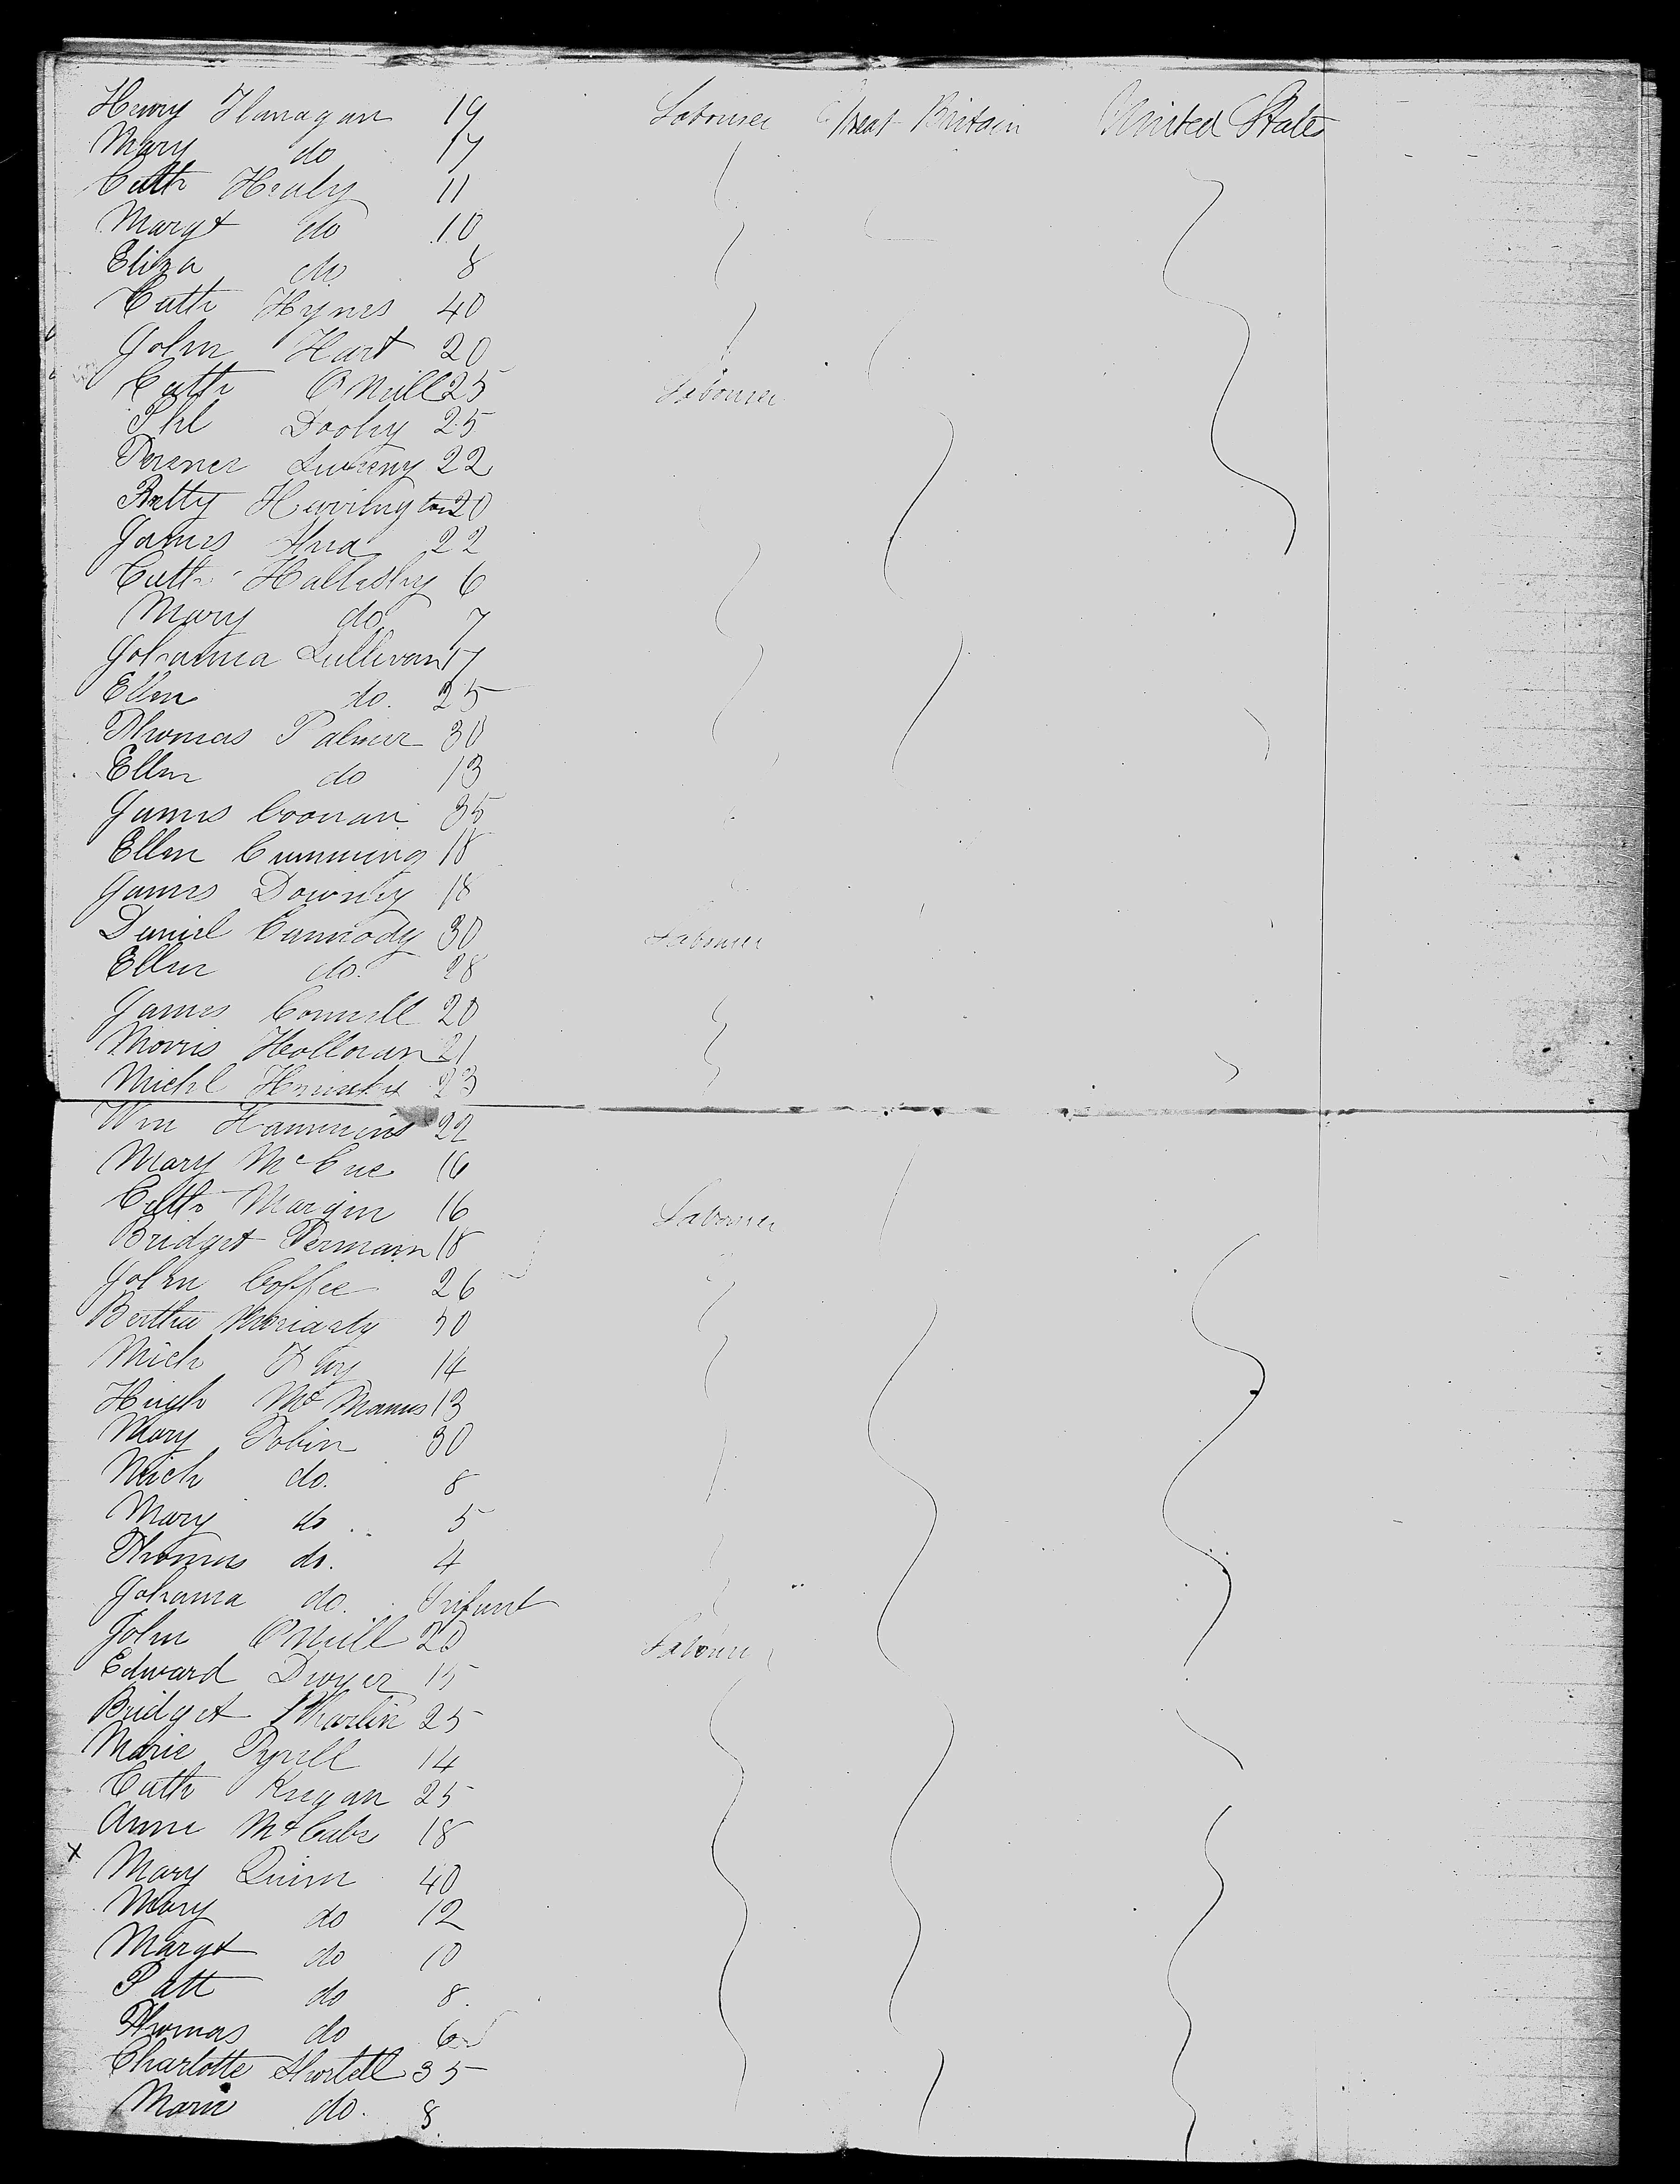 Henry Flanagan 19 Labourer Great Britain United States
Mary do 17
Cath Healy 11
Margt do 10
Eliza do 8
Cath Hynes 40
John Hart 20
Cath O Neill 25 Labourer
Phl Dooley 25
Terence Sweeny 22
Betty Harrington 20
James Shea 22
Cath Hallishy 6
Mary do 7
Johanna Sullivan 17
Ellen do. 25
Thomas Palmer 30
Ellen do 13
James Coonan 35
Ellen Cumming 18
James Downey 18
Daniel Carmody 30 Labourer
Ellen do. 28
James Connell 20
Morris Holloran 21
Michl 23
Wm Hammins 22
Mary McCue 16
Cath Margin 16 Labourer
Bridget 18
John Coffee 26
Bertha Moriarty 50
Mich Foy 14
Hugh McManus 13
Mary Tobin 30
Mich do. 8
Mary do 5
Thomas do. 4
Johanna do. Infant
John O Neill 20 Labourer
Edward Dwyer 15
Bridget 25
Marie Tyrell 14
Cath Keegan 25
Anne McCabe 18
x Mary Quinn 40
Mary do 12
Margt do 10
Patt do 8.
Thomas do 6
Charlotte Shortell 35
Marie do. 8